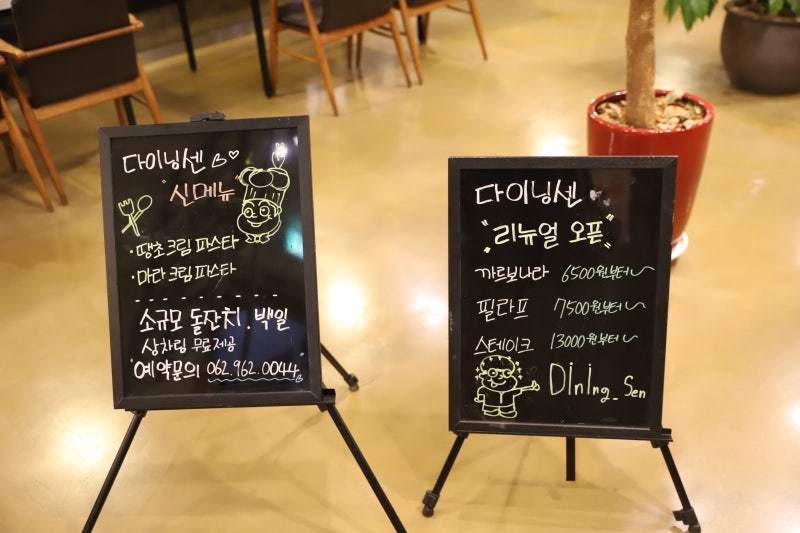 다이닝센
"신메뉴"
· 땡초크림 파스타
· 마라크림파스타
소규모 돌잔치. 백일
상차림 무료제공
예약문의 062.962.0044
다이닝센
"리뉴얼 오픈"
까르보나라 6500원부터~
필라프 7500원부터~
스테이크 13000원부터~
Dining_Sen